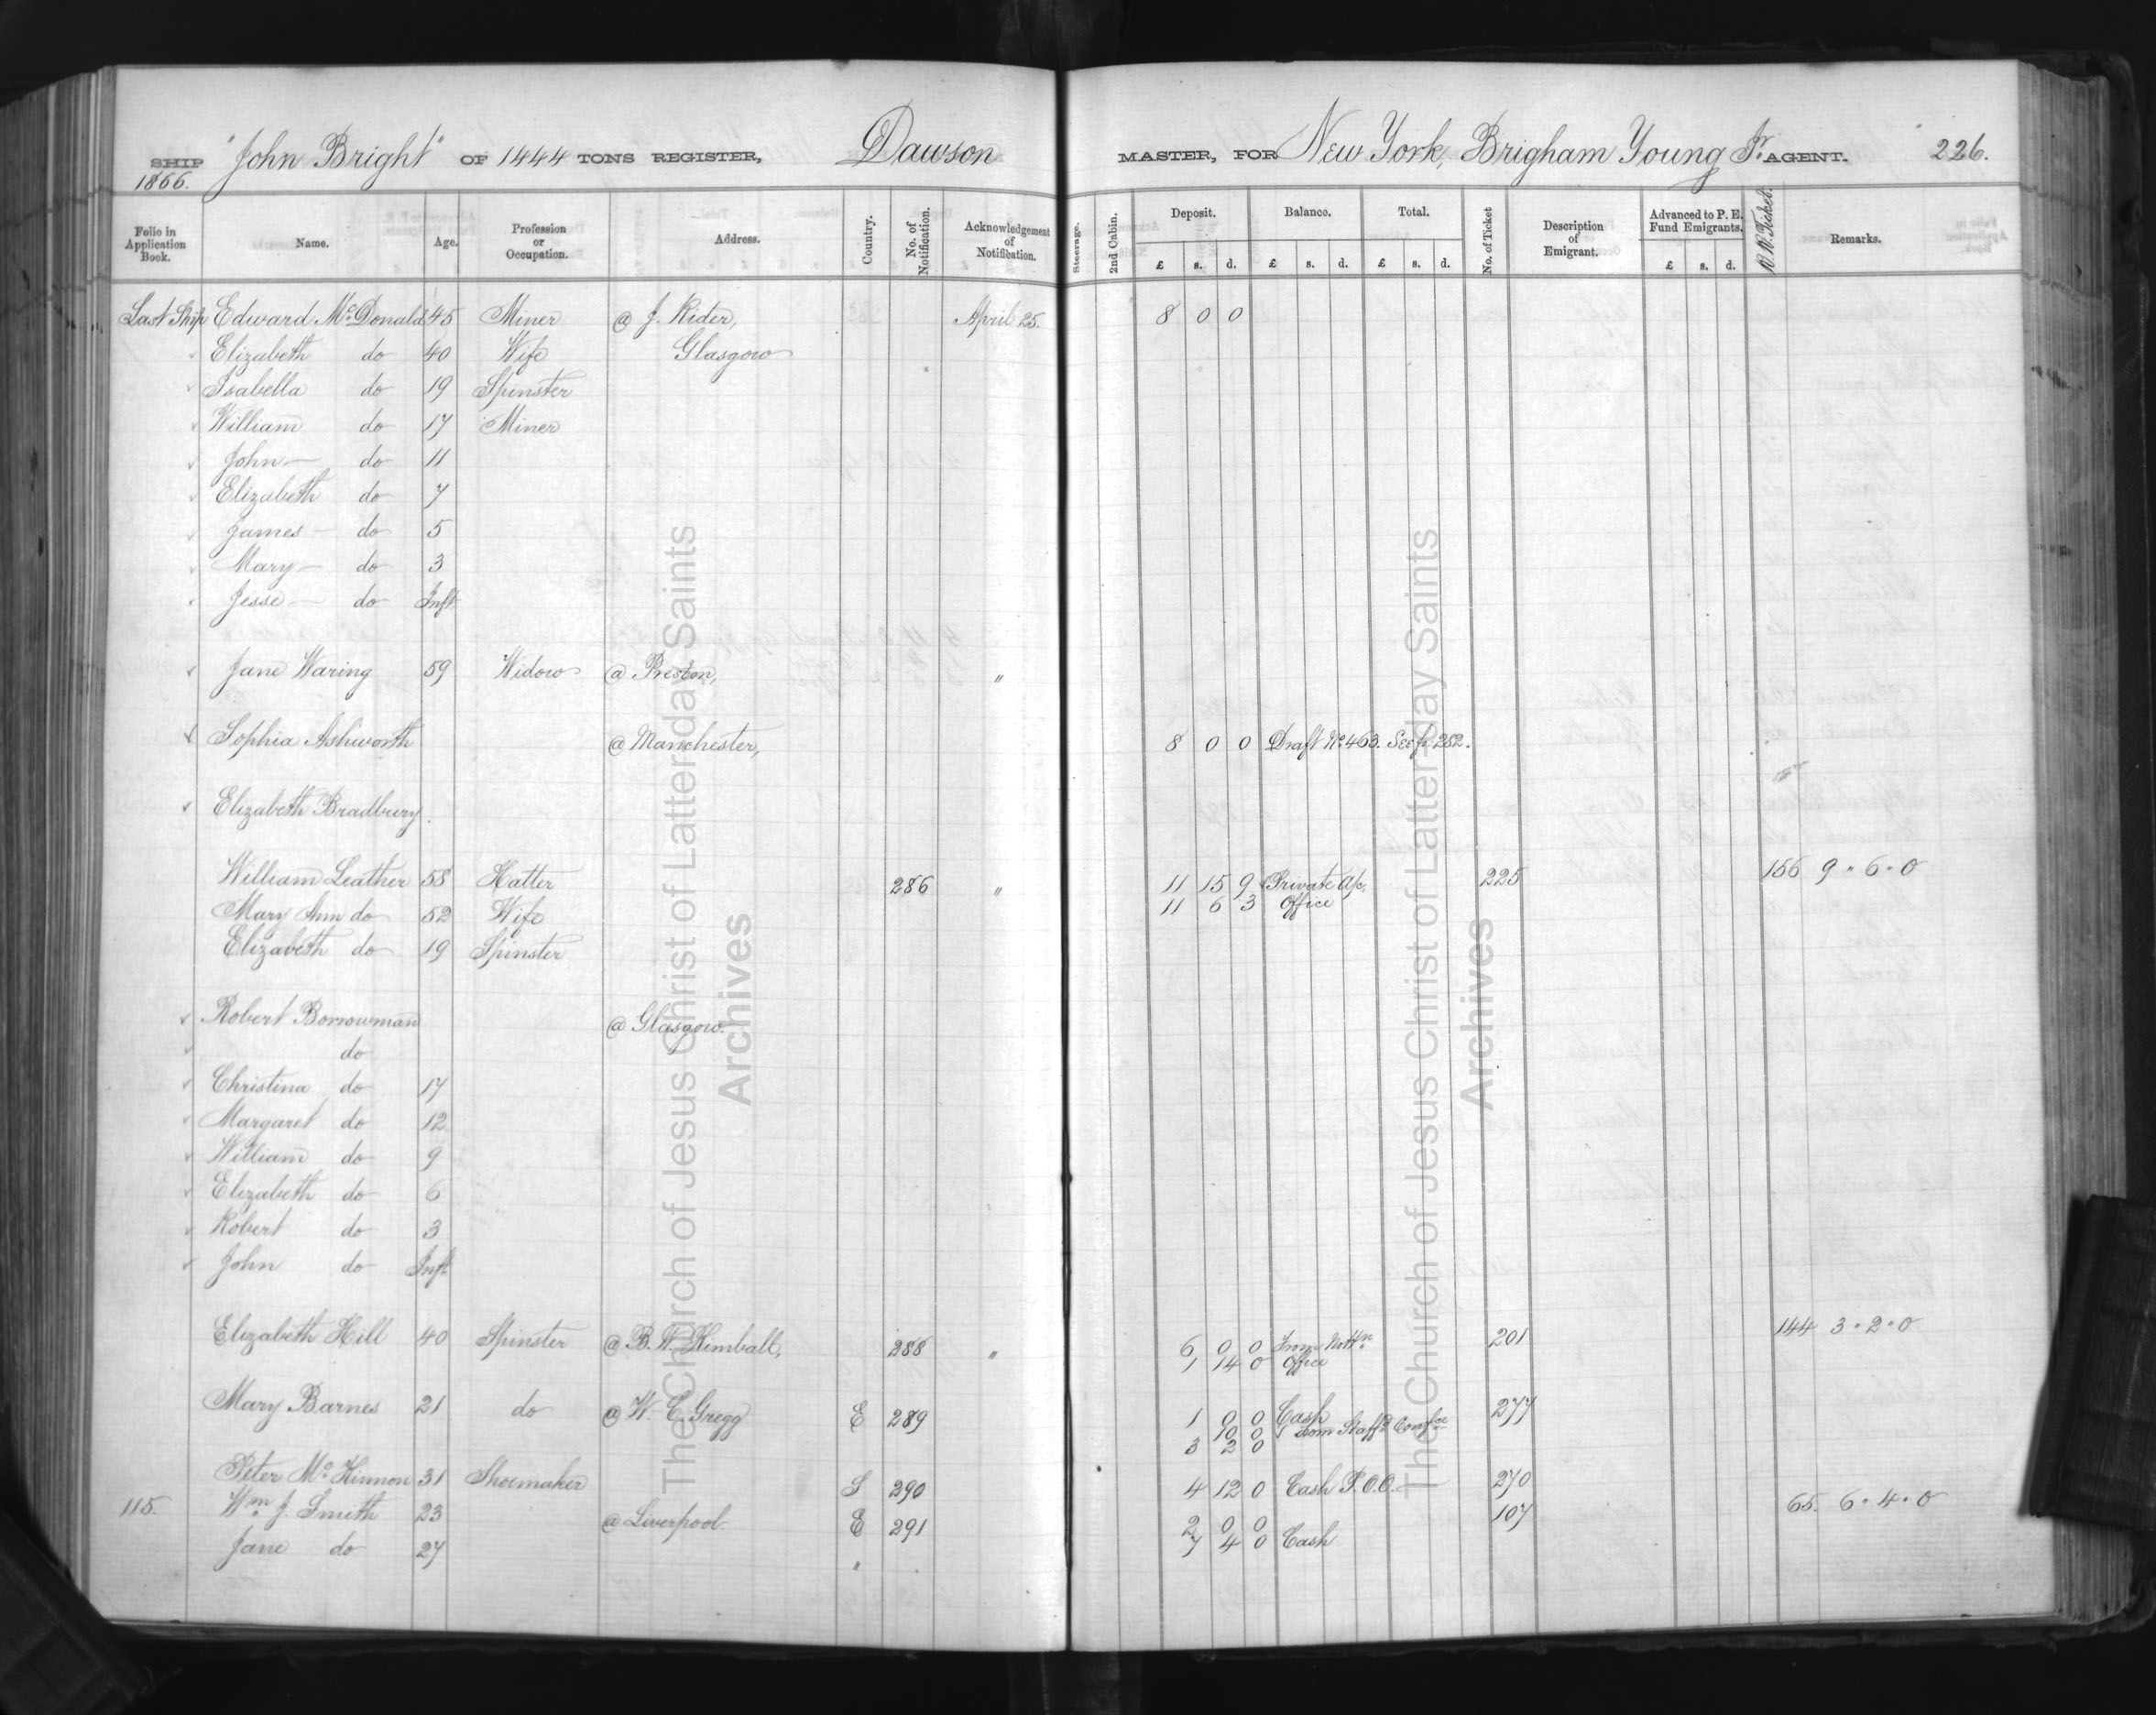 SHIP "John Bright" OF 1444 TONS REGISTER, Dawson MASTER, FOR New York, Brigham Young Jr. AGENT. 226.
1866.
Folio in Application Book. Name. Age. Profession or Occupation. Address. Country. No. of Notification. Acknowledgement of Notification. Steerage. 2nd Cabin. Deposit. £ s. d. Balance. £ s. d. Total. £ s. d. No. of Ticket Description of Emigrant. Advanced to P. E. Fund Emigrants. £ s. d. R.R. Ticket. Remarks.
Last Ship Edward McDonald 45 Miner @ J. Rider, April 25. 8 0 0
Elizabeth do 40 Wife Glasgow
Isabella do 19 Spinster
William do 17 Miner
John do 11
Elizabeth do 7
James do 5
Mary do 3
Jesse do Inft
Jane Waring 59 Widow @ Preston, "
Sophia Ashworth @ Manchester, 8 0 0 Draft No. 463. See p. 282.
Elizabeth Bradbury.
William Leather 58 Hatter 286 " 11 15 9 Private a/c. 225 156 9 " 6 " 0
11 6 3 Office
Mary Ann do 52 Wife
Elizabeth do 19 Spinster
Robert Borrowman @ Glasgow.
do
Christina do 17
Margaret do 12
William do 9
Elizabeth do 6
Robert do 3
John do Inft
Elizabeth Hill 40 Spinster @ B. W. Kimball, 288 " 6 0 0 From Nottm 201 144 3 " 2 " 0
1 14 0 Office
Mary Barnes 21 do @ W. C. Gregg E 289 1 0 0 Cash 277
10 0 from Staffd Confce
3 2 0
Peter McKinnon 31 Shoemaker S 290 4 12 0 Cash P.O.O. 270
115. Wm. J. Smith 23 @ Liverpool. E 291 2 0 0 107 65. 6 " 4 " 0
7 4 0 Cash
Jane do 27 "
The Church of Jesus Christ of Latter-day Saints
Archives
The Church of Jesus Christ of Latter-day Saints
Archives